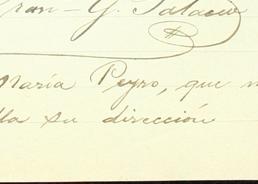 Fran — G. Palacio
María Peyro, que n
lla su dirección